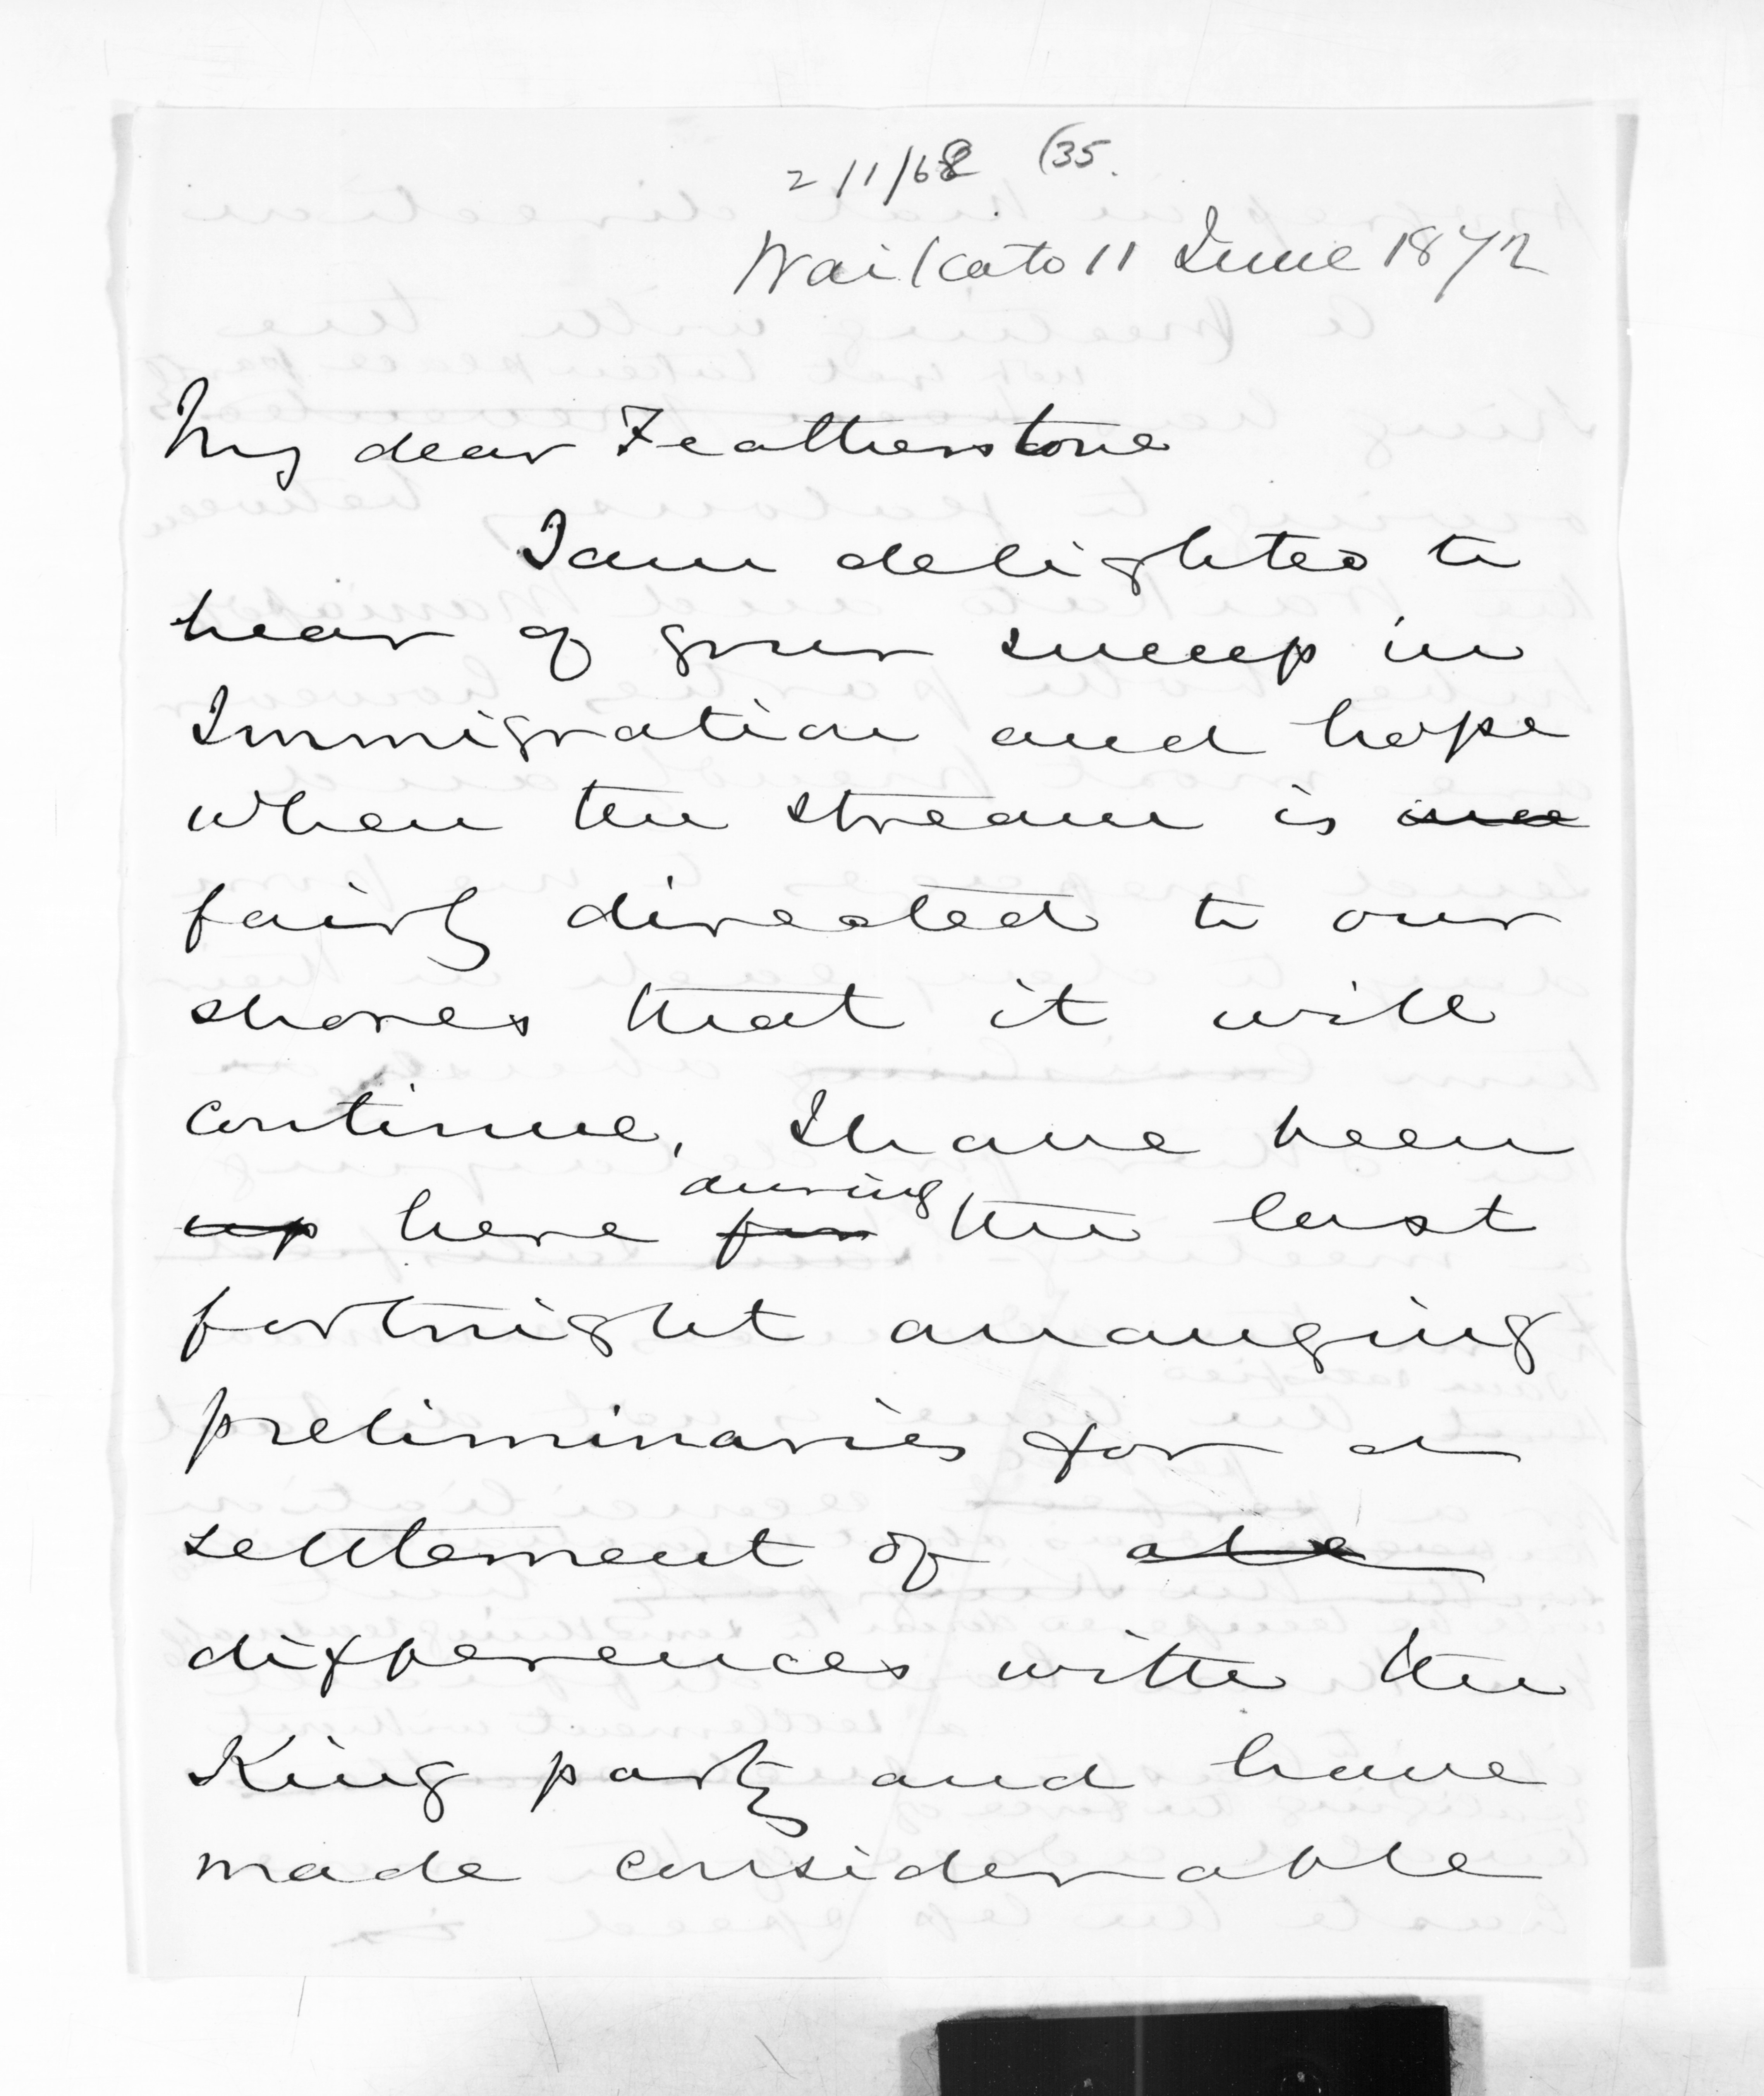 211/68 (35.
Waikato 11 June 1872
My dear Featherstone
I am delighted to
hear of your success in
Immigration and hope
when the stream is once
fairly directed to our
shores that it will
continue, I have been
during
up here for the last
fortnight arranging
preliminaries for a
settlement of
differences with the
King party and have
made considerable